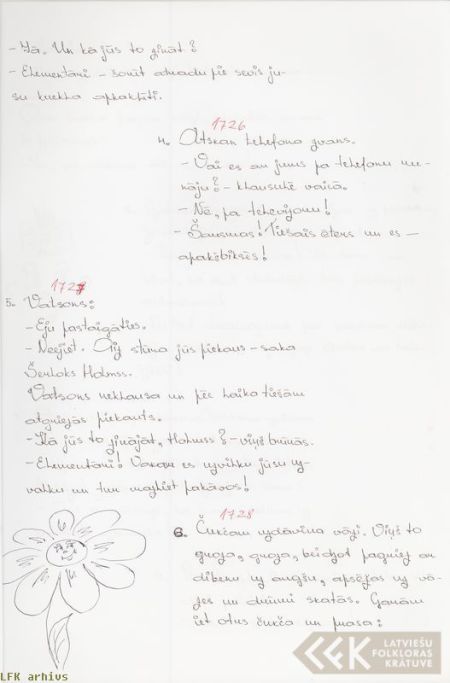 - Jā. Un kā jūs to zināt?
- Elementāri - šorīt atradu pie sevis jū-
su kurkha apkakļīti.
1726
4. Atskan telefona zvans.
- Vai es ar jums pa telefonu ru-
nāju? - klausulē vaicā.
- Nē, pa televizoru!
- Šausmas! Tiešais ēters un es -
apakšbiksēs!
1727
5. Vatsons:
- Eju pastaigāties.
- Neejiet. Aiz stūra jūs piekaus - saka
Šerloks Holmss.
Vatsons neklausa un pēc laika tiešām
atgriežas piekauts.
- Kā jūs to zinājāt, Holmss? - viņš brīnās.
- Elementāri! Vakar es uzvilku jūsu uz-
valku un tur mazliet pakāvos!
1728
6. Čukčam uzdāvina vāzi. Viņš to
groza, groza, beidzot pagriež ar
dibenu uz augšu, apsēžas uz vā-
zes un drūmi skatās. Garām
iet otrs čukča un prasa:
LATVIEŠU
FOLKLORAS
KRĀTUVE
LFK arhīvs